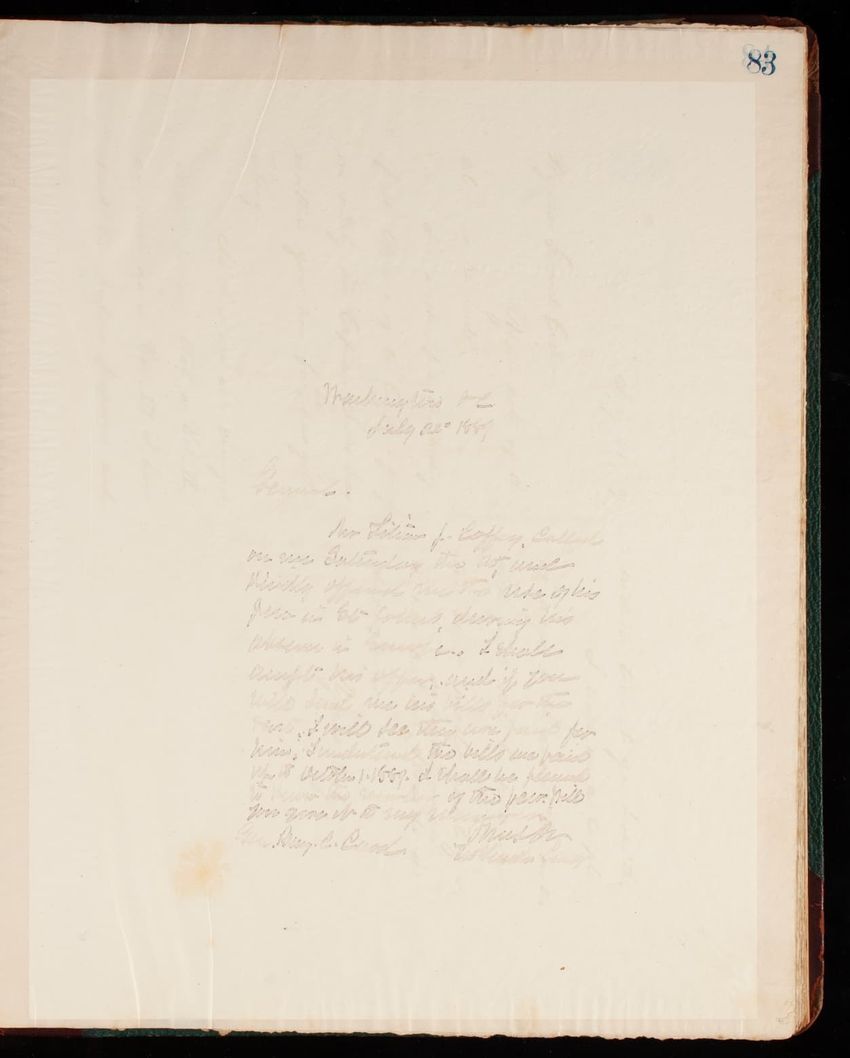 83
Washington DC
July 22d 1889
General.
Mr Titian J. Coffey, Called
on me Saturday the and
kindly offered me the use of his
Pew in St Johns, during his
absence in Europe. I shall
accept his offer, and if you
will send me his bills for the
rent, I will see they are paid for
him, I understand the bills are paid
to October 1. 1889. I shall be pleased
to know the number of the pew. Will
you give it to my messenger
Genl. Benj. C. Card.